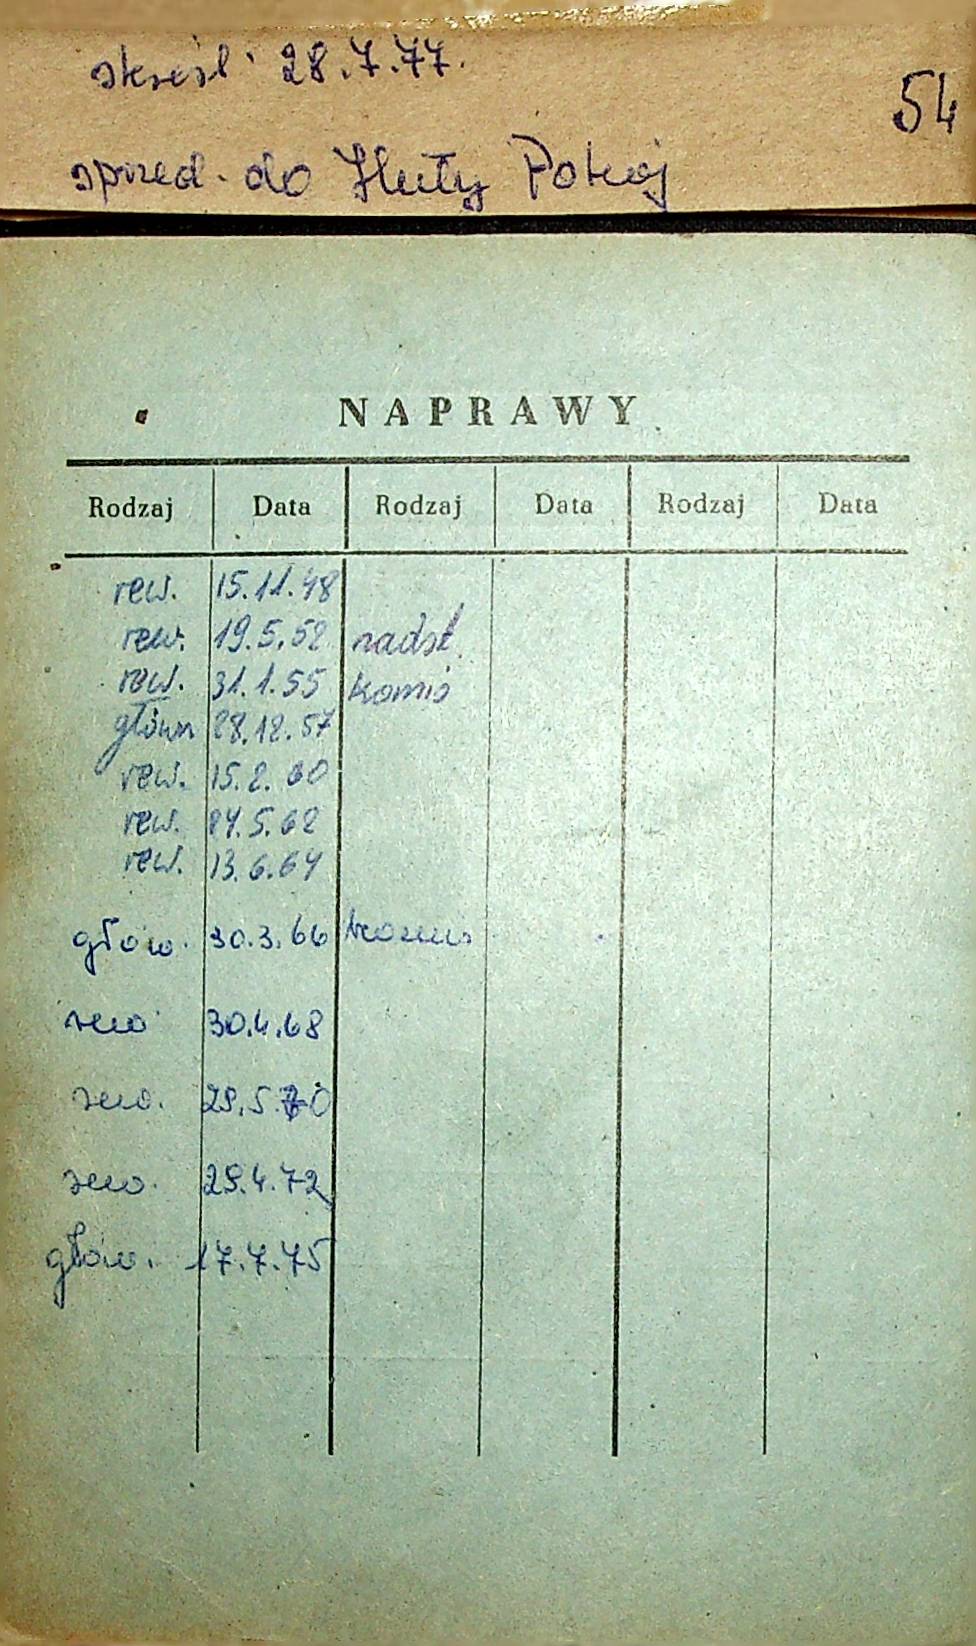 skreśl. 28.7.77.
54
sprzed. do Huty Pokój
NAPRAWY
Rodzaj Data Rodzaj Data Rodzaj Data
rew. 15.11.48
rew. 19.5.52 nadst.
rew. 31.1.55
główn 28.12.57
rew. 15.2.60
rew. 24.5.62
rew. 13.6.64
głów. 30.3.66
rew 30.4.68
rew. 29.5.70
rew. 29.4.72
głów. 17.7.75